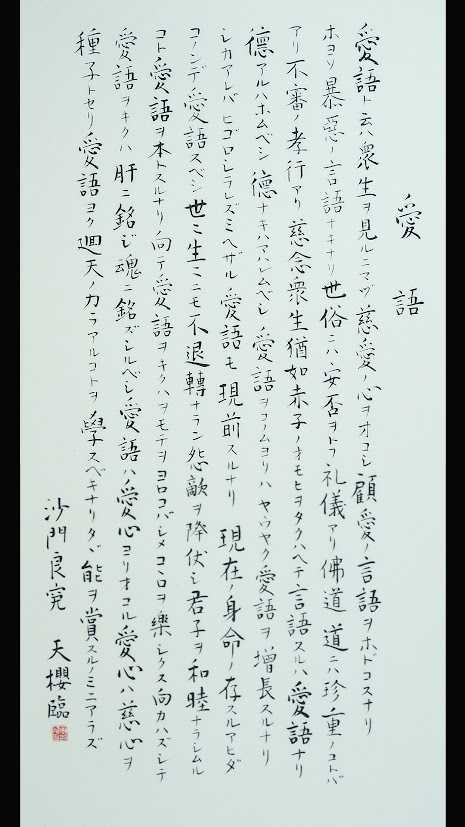 愛語
愛語ト云ハ衆生ヲ見ルニマヅ慈愛ノ心ヲオコシ顧愛ノ言語ヲホドコスナリ
ホヨソ暴惡ノ言語ナキナリ世俗ニハ安否ヲトフ礼儀アリ佛道ニハ珍重ノコトバ
アリ不審ノ孝行アリ慈念衆生猶如赤子ノオモヒヲタクハヘテ言語スルハ愛語ナリ
德アルハホムベシ德ナキハアハレムベシ愛語ヲコノムヨリハヤウヤク愛語ヲ增長スルナリ
シカアレバヒゴロシラレズミヘザル愛語モ現前スルナリ現在ノ身命ノ存スルアヒダ
コノンデ愛語スベシ世々生々ニモ不退轉ナラン怨敵ヲ降伏シ君子ヲ和睦ナラシムル
コト愛語ヲ本トスルナリ向テ愛語ヲキクハヲモテヲヨロコバシメコヽロヲ樂シクス向カハズシテ
愛語ヲキクハ肝ニ銘ジ魂ニ銘ズシルベシ愛語ハ愛心ヨリオコル愛心ハ慈心ヲ
種子トセリ愛語ヨク廻天ノ力ラアルコトヲ學スベキナリタヾ能ヲ賞スルノミニアラズ
沙門良寛 天櫻臨